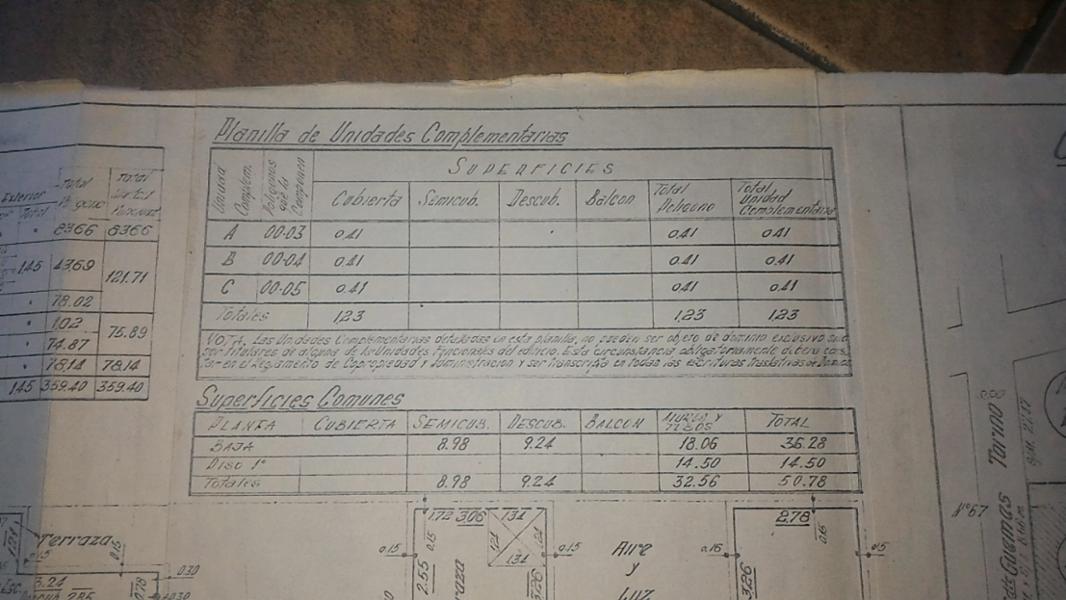 Planilla de Unidades Complementarias
SUPERFICIES
Unidad Complem.
Poligonos que la Componen
Cubierta Semicub. Descub. Balcon Total Poligono Total Unidad Complementaria
A 00-03 0.41 0.41 0.41
B 00-04 0.41 0.41 0.41
C 00-05 0.41 0.41 0.41
Totales 1,23 1,23 1,23
NOTA. Las Unidades Complementarias detalladas en esta planilla, no pueden ser objeto de dominio exclusivo
ser titulares de alguna de las Unidades Funcionales del edificio. Esta circunstancia obligatoriamente debera
en el Reglamento de Copropiedad y Administracion y ser transcripta en todas las escrituras
Superficies Comunes
PLANTA CUBIERTA SEMICUB. DESCUB. BALCON MUROS Y TOTAL
BAJA 8.98 9.24 18.06 36.28
PISO 1° 14.50 14.50
Totales 8.98 9.24 32.56 50.78
Exterior Total
Total
Total
8366 8366
1.45 43.69
121.71
78.02
1.02
75.89
74.87
78,14 78,14
1.45 359.40 359.40
Terraza
1.21
0.15
0.15
3.24
2.85
0.78
0.30
0.30
1.72 3.06 1.31
0.15
0.15
1.21
1.21
1.31
0.15
2.55
3.26
Aire
y
Luz
2.78
0.15
0.16
0.15
3.26
Torino
N°67
Guemes